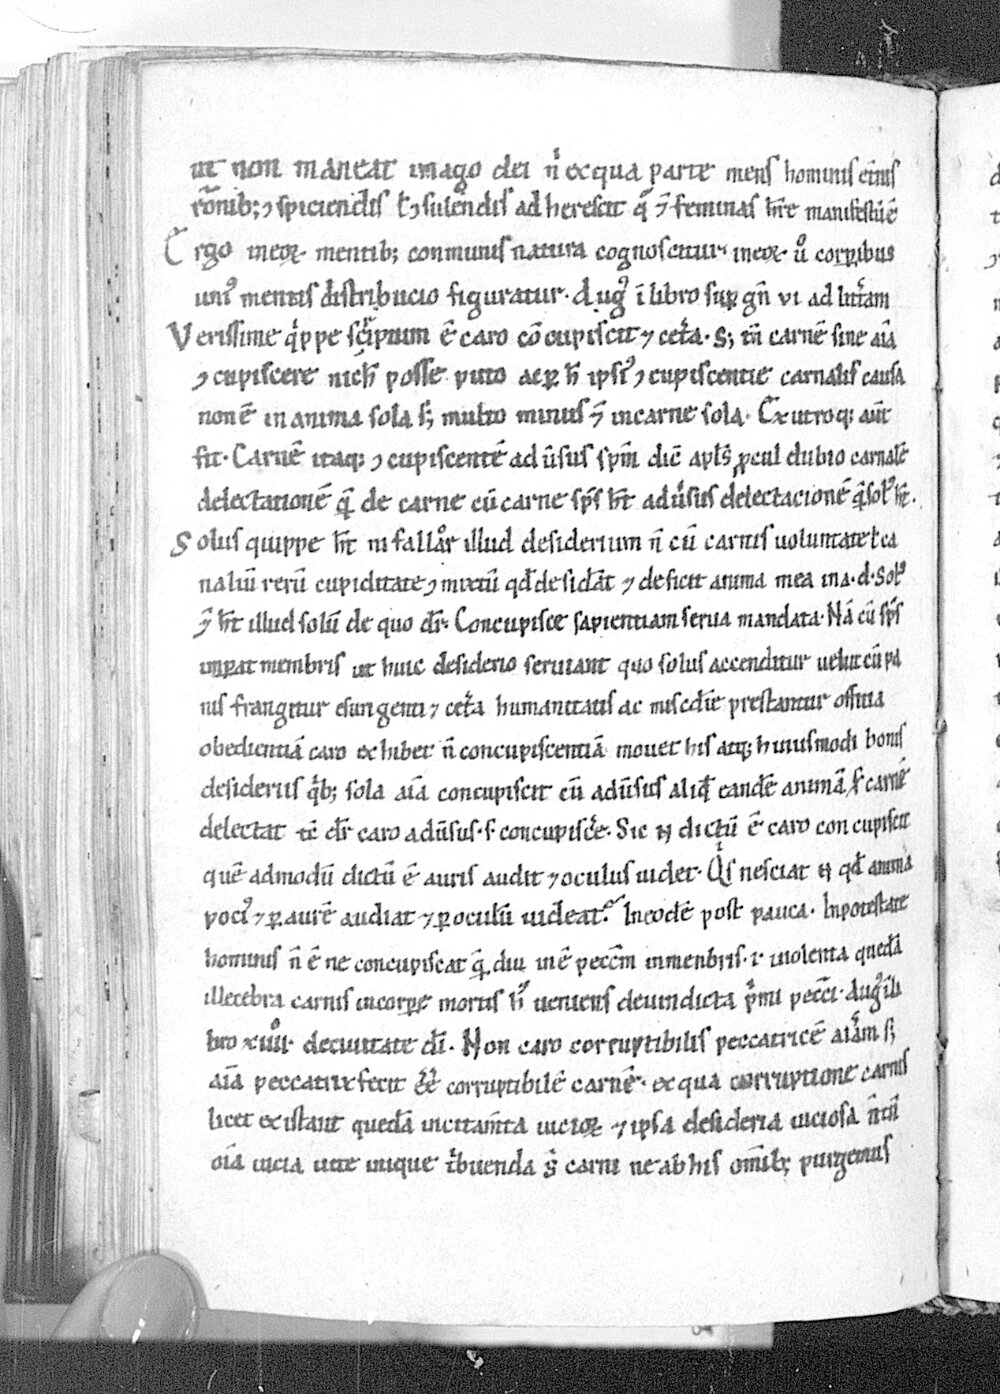 ut non maneat imago dei n̄ exqua parte mens hominis et̄nis
rōnib; ꝯspiciendis ł ꝯsulendis adherescit q̄ ⁊ feminas h̄re manifestū ē
Ergo ineoꝝ mentib; communis natura cognoscitur ineoꝝ ů corꝑibus
uniꝰ mentis distribucio figuratur. Augꝰ ī libro suꝑ gn̄ vi ad litt̄am
Verissime q̇ppe sc̄ptum ē caro cōcupiscit ⁊ cet̄a. S; tn̄ carnē sine aīa
ꝯcupiscere nich̄ posse puto acꝑ h̄ ipsiꝰ ꝯcupiscentie carnalis causā
non ē in anima sola s; multo minus ⁊ incarne sola. Ex utroq; aūt
fit. Carnē itaq; ꝯcupiscentē adūsus sp̄m dic̄ apl̄s ꝓcul dubio carnalē
delectationē q̄ de carne cū carne sp̄s h̄t adūsus delectacionē q̄ solꝰ h̄t.
Solus quippe h̄t ni fallår illud desiderium n̄ cū carnis uoluntate ł ca
naliū rerū cupiditate ꝯmixtū qđ desiđat ⁊ deficit anima mea in a. d. Solꝰ
⁊ h̄t illud solū de quo dr̄. Concupisce sapientiam serua mandata. Nā cū sp̄s
imꝑat membris ut huic desiderio seruiant quo solus accenditur uelut cū pa
nis frangitur esurgenti ⁊ cet̄a humanitatis ac miscd̄ie prestantur offitia
obedientiā caro exhibet n̄ concupiscentiā mouet his atq; huiusmodi bonis
desideriis q̇b; sola aīa concupiscit cū adūsus aliqđ eandē animā scd̄ carnē
delectat tc̄ dr̄ caro adūsus s̄ concupiscere. Sic n̄ dictū ē caro concupiscit
quē admodū dictū ē auris audit ⁊ oculus uidet. Qis nesciat n̄ qđ anima
pociꝰ ⁊ ꝑ aurē audiat ⁊ ꝑ oculū uideat. In eodē post pauca. In potestate
hominis n̄ ē ne concupiscat q̄ diu in ē pecc̄m in menbris. i. uiolenta quedā
illecebra carnis in corꝑe mortis hꝰ ueniens de uindicta p̄mi pecc̄i. Augꝰ li
bro xiiii. de ciuitate di. Non caro corruptibilis peccatricē aīam s;
aīa peccatrix fecit eē corruptibilē carnē. ex qua corruptione carnis
licet existant quedā incitam̄ta uicioꝝ ⁊ ipsa desideria uiciosa n̄ tn̄
oīa uicia uite inique t̄buenda s̄ carni ne ab his om̄ib; purgemus